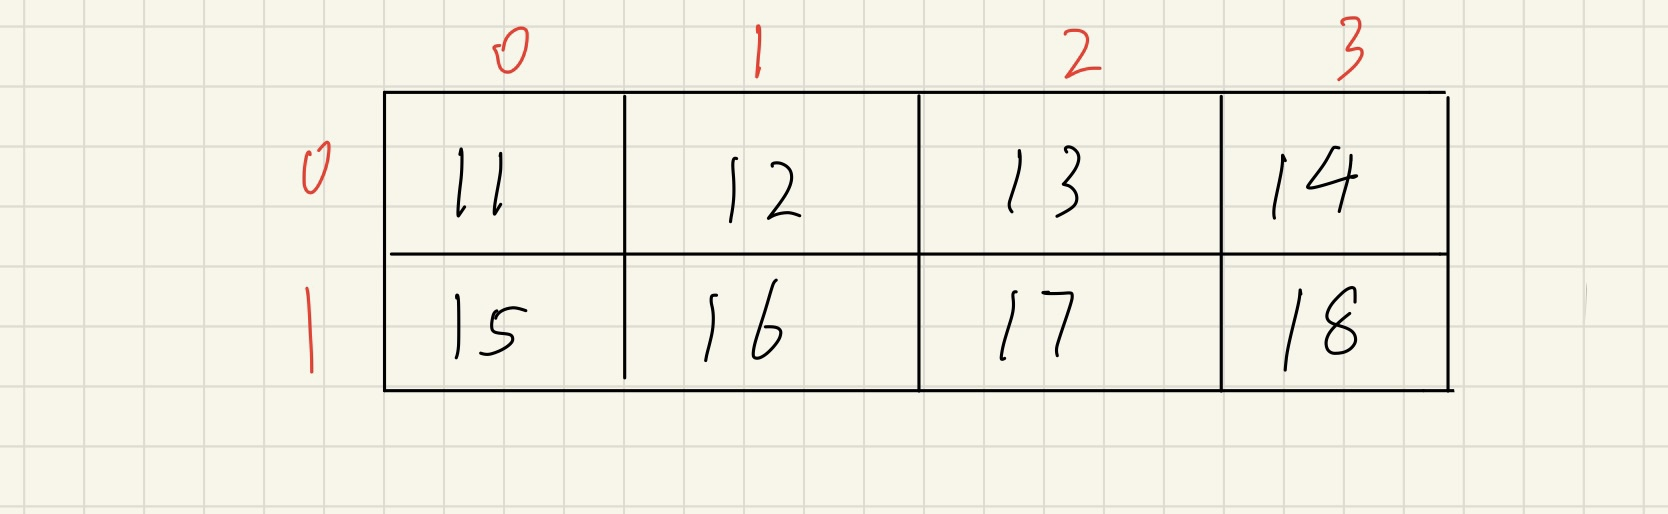 0 1 2 3
0 11 12 13 14
1 15 16 17 18